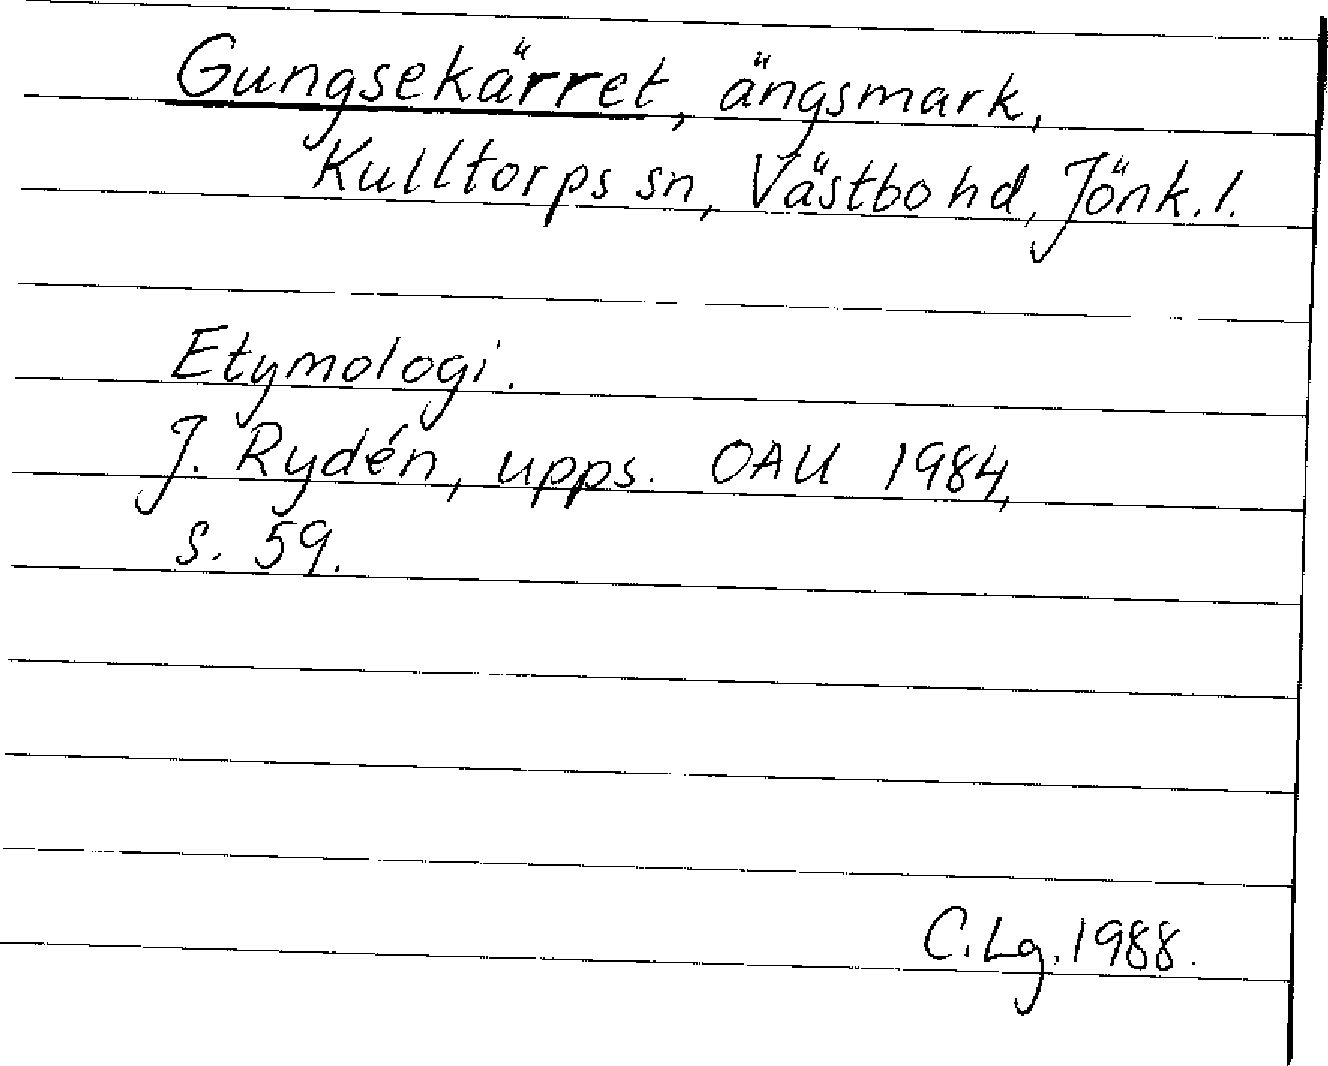 Gungsekärret, ängsmark,
Kulltorps sn, Västbo hd, Jönk. l.
Etymologi.
J. Rydén, upps. OAU 1984,
s. 59.
C. Lg. 1988.